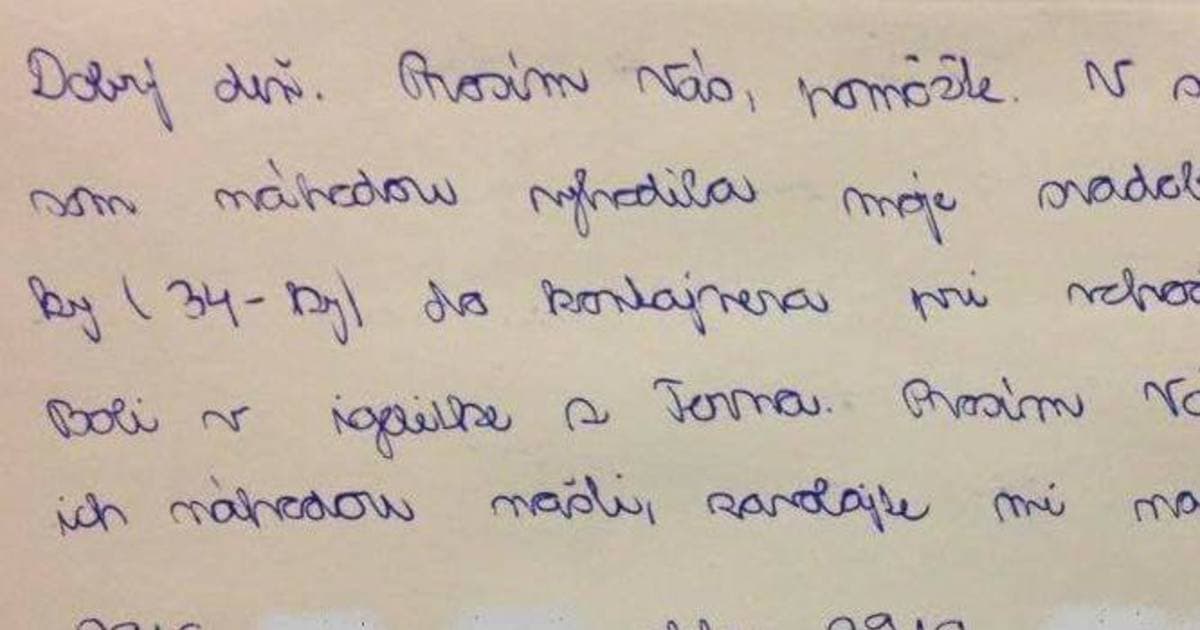 Dobrý deň. Prosím Vás, pomôžte. V s
som náhodou vyhodila moje svadob
ky (34-ky) do kontajnera pri vchod
Boli v igelitke z Terna. Prosím Vá
ich náhodou našli, zavolajte mi na